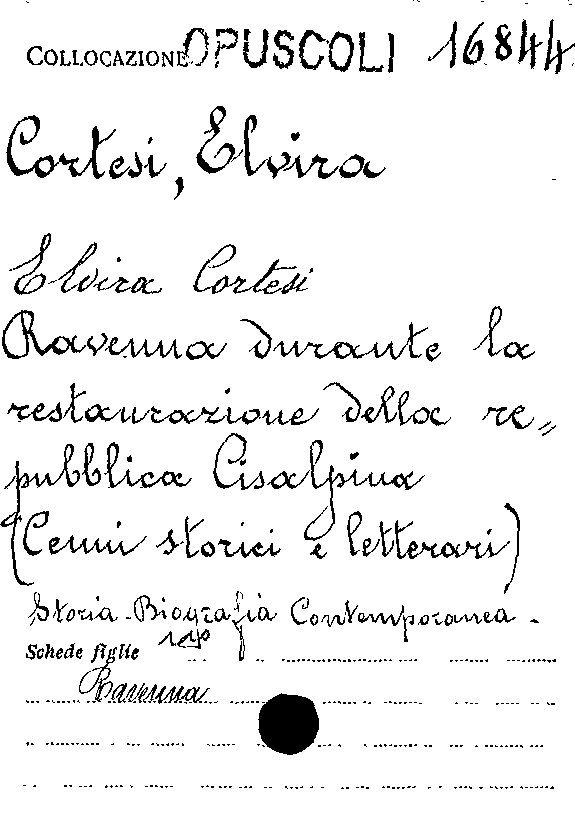 COLLOCAZIONE OPUSCOLI 16844
Cortesi, Elvira
Elvira Cortesi
Ravenna durante la
restaurazione della re=
pubblica Cisalpina
(Cenni storici e letterari)
Storia - Biografia Contemporanea.
Schede figlie
Ravenna